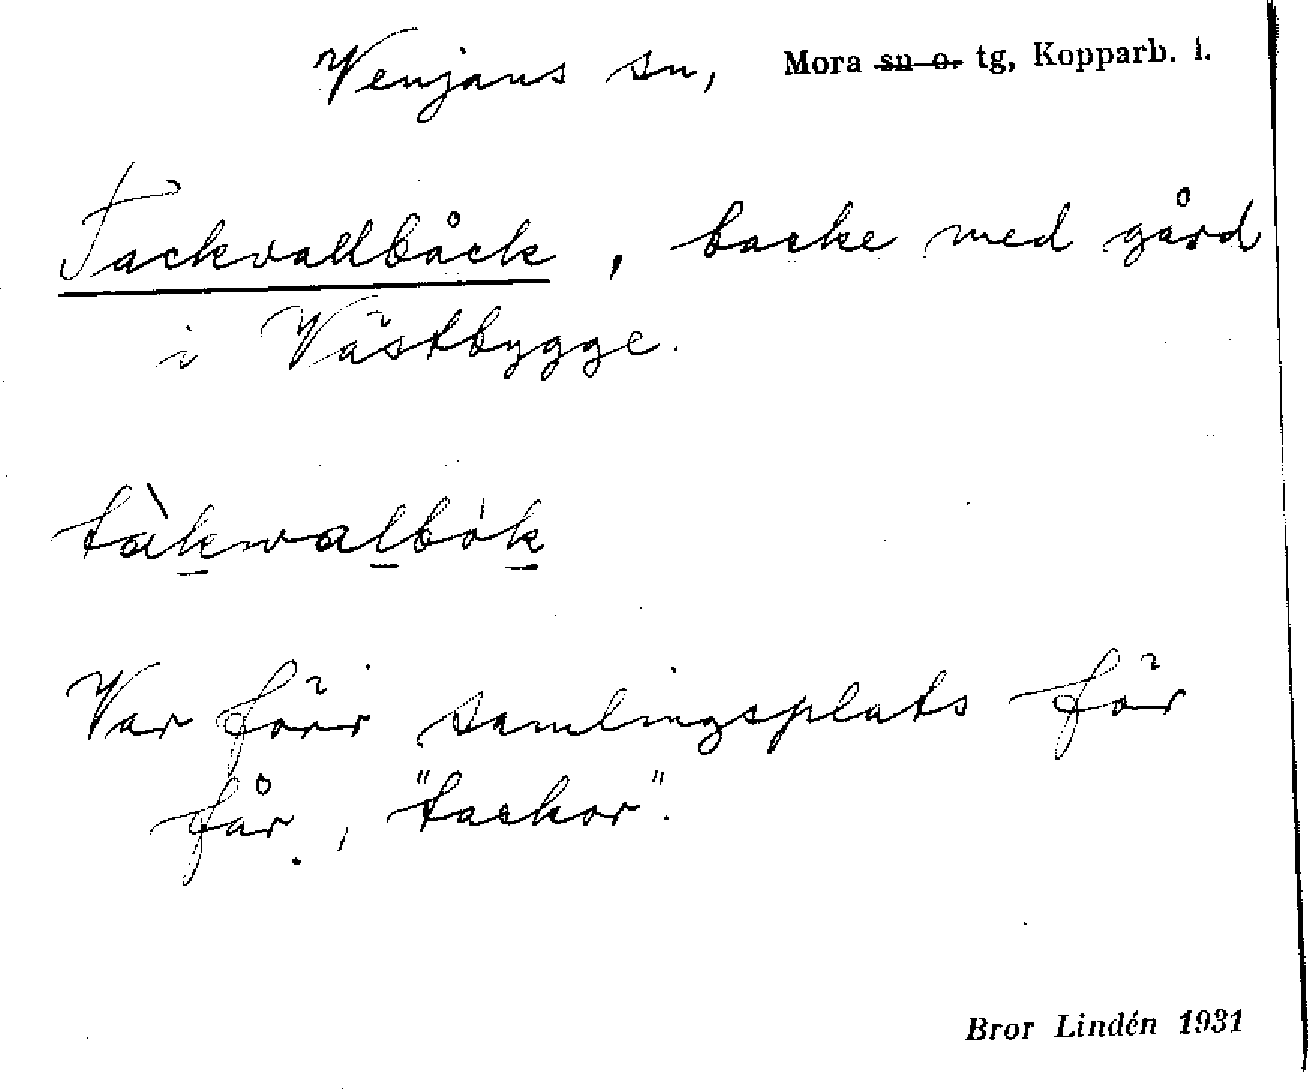 Venjans sn, Mora sn o. tg, Kopparb. l.
Tackvallbåck, backe med gård
i Västbygge.
tàkwalbòk
Var förr samlingsplats för
får, "tackor".
Bror Lindén 1931